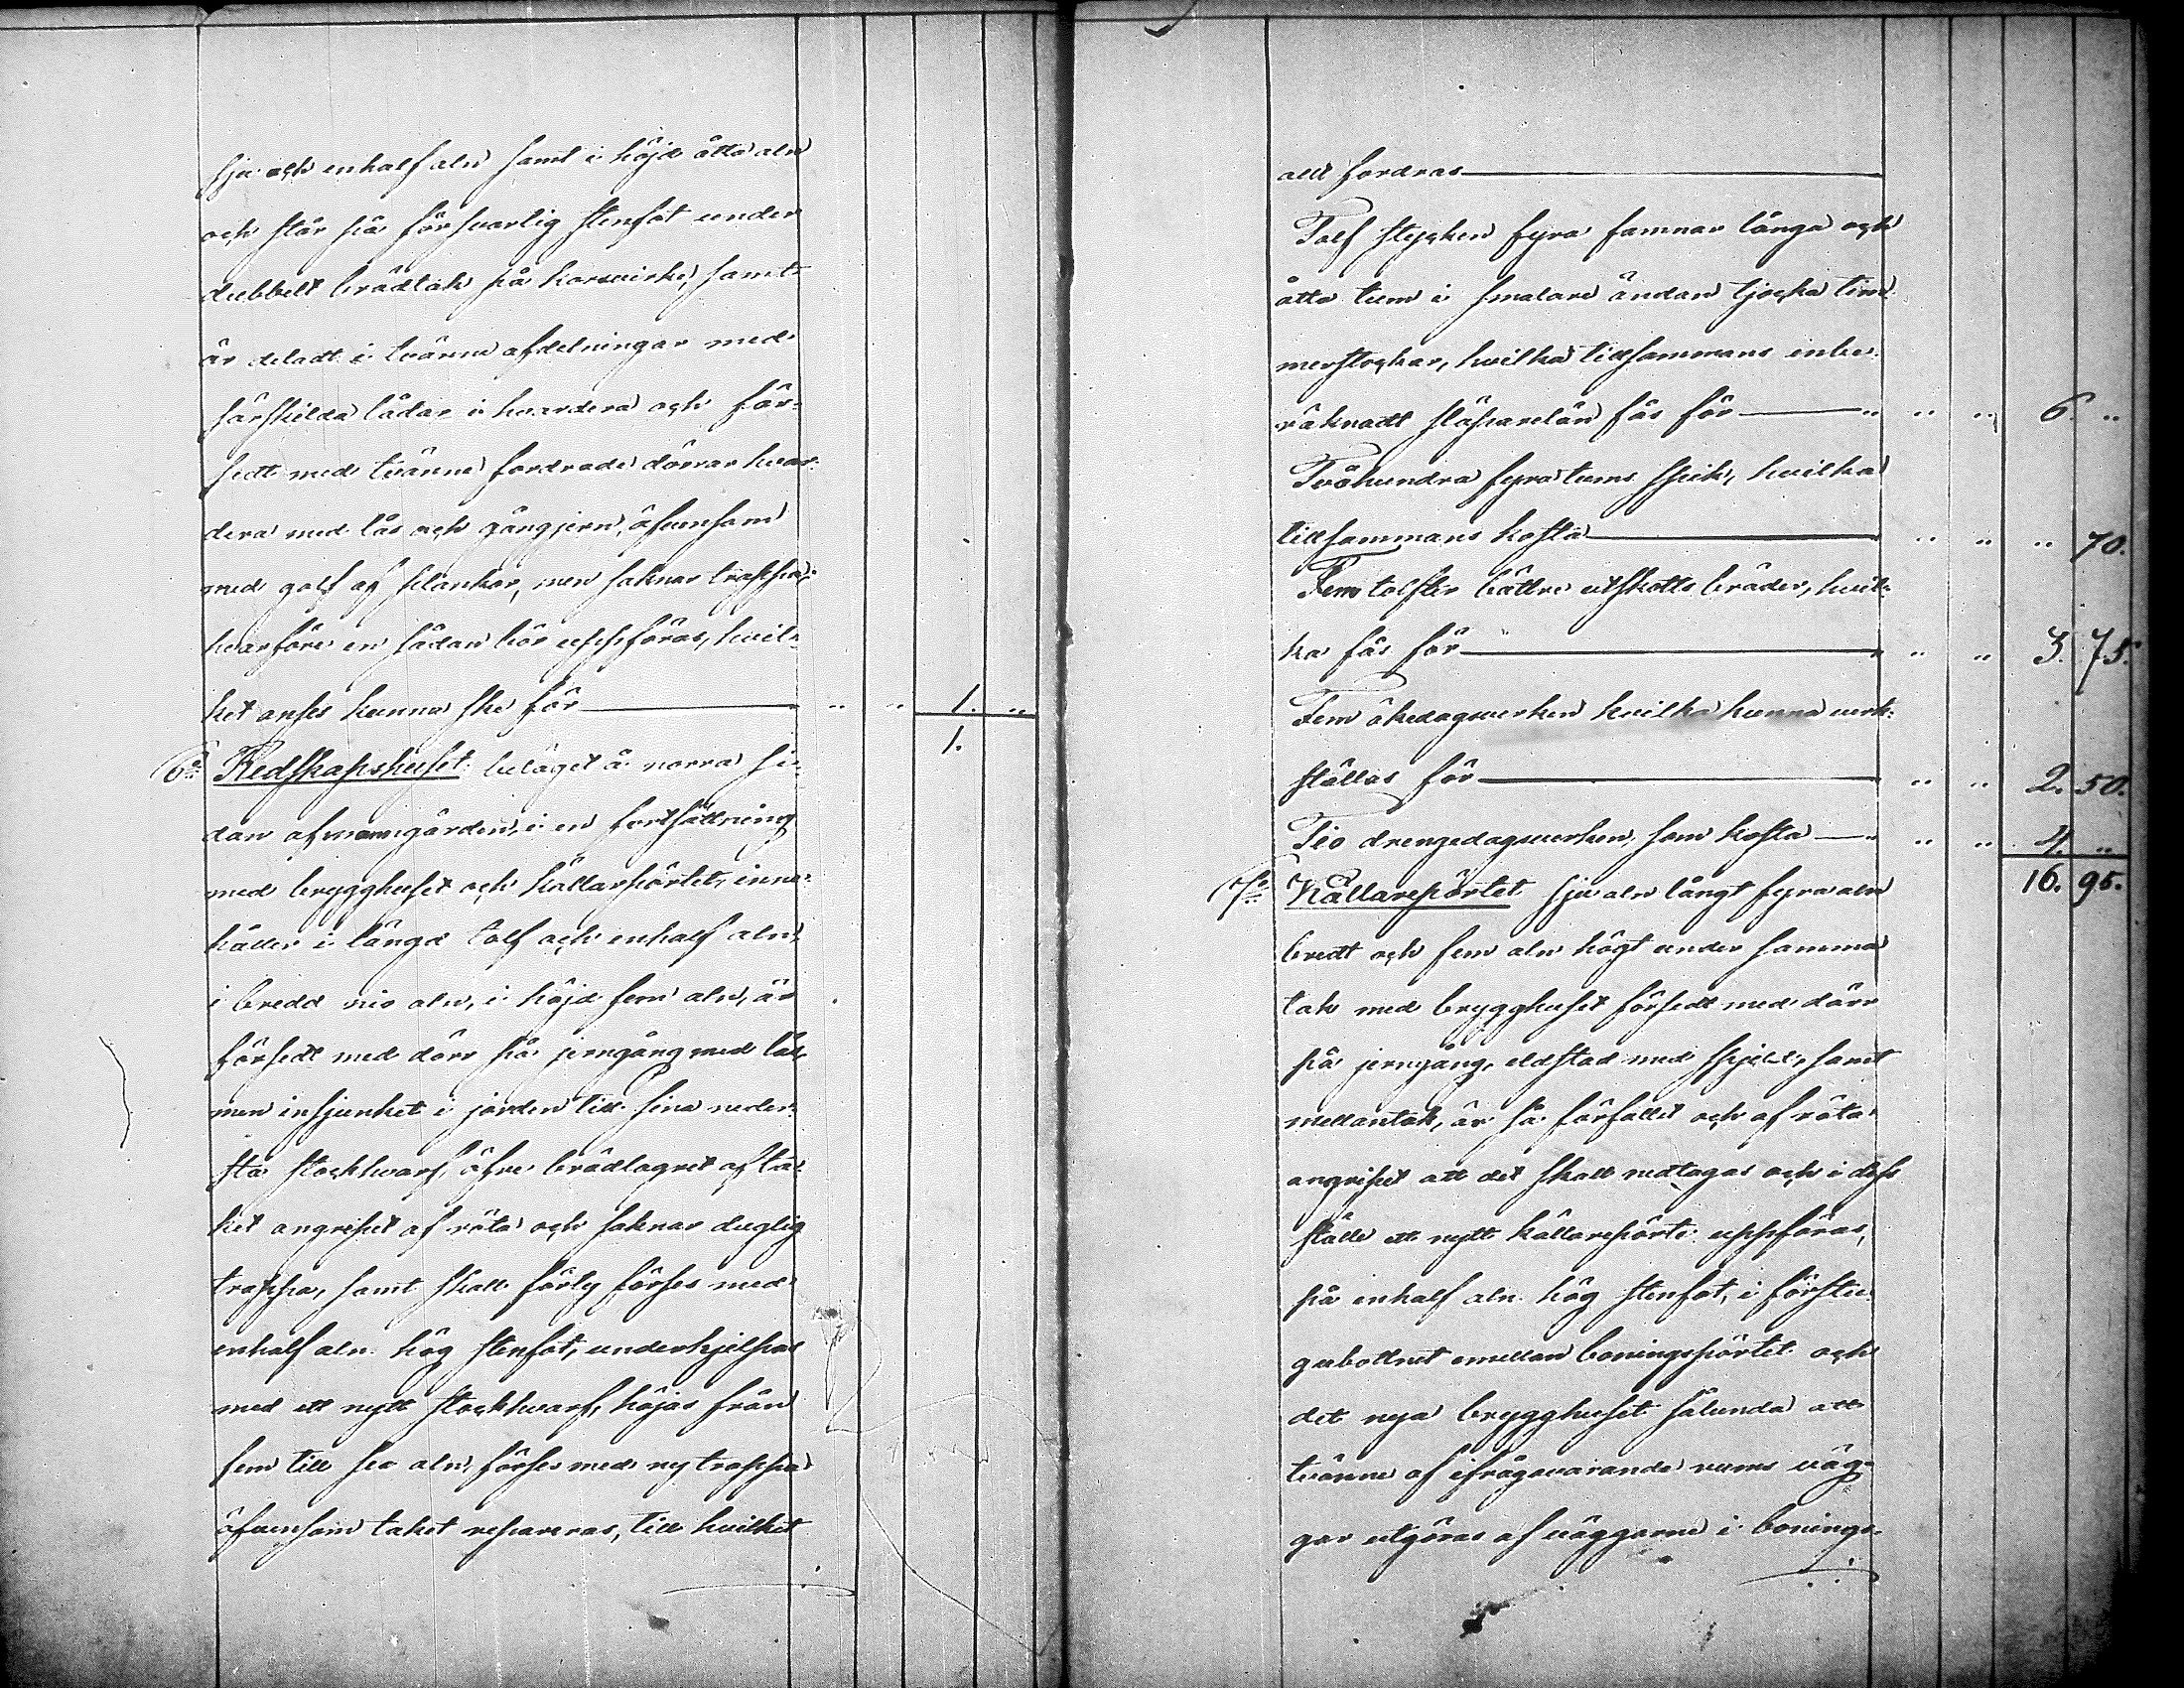 sju och enhalf aln samt i höjd åtta aln
och står på försvarlig stenfot under
dubbelt brädtak på korsvirke, samt
är deladt i tvänne afdelningar med
särskilda lådar i hvardera och för-
sedt med tvänne fordrade dörrar hvar-
dera med lås och gångjern, äfvensom
med golf af plankor, men saknar trappa;
hvarföre en sådan bör uppföras, hvil-
ket anses kunna ske för .. .. 1. ..
1.
6:o Redskapshuset beläget å norra si-
dan af manngården, i en fortsättning
med brygghuset och källarpörtet, inne-
håller i längd tolf och enhalf aln,
i bredd nio aln, i höjd fem aln, är
försedt med dörr på jerngång med lås,
men insjunket i jorden till sina neder-
sta stockhvarf, öfre brädlagret af ta-
ket angripet af röta och saknar duglig
trappa, samt skall förty förses med
enhalf aln hög stenfot, underhjelpas
med ett nytt stockhvarf, höjas från
fem till sex aln, förses med ny trappa
äfvensom taket repareras, till hvilket
allt fordras
Tolf stycken fyra famnar långa och
åtta tum i smalare ändan tjocka tim-
merstockar, hvilka tillsammans inbe-
räknadt släparelön fås för .. .. .. 6. ..
Tvåhundra fyratums spik, hvilka
tillsammans kosta .. .. .. 70.
Fem tolfter bättre utskotts bräder, hvil-
ka fås för .. .. 3. 75.
Fem ökedagsverken hvilka kunna verk-
ställas för .. .. 2. 50.
Tio drengedagsverken, som kosta .. .. 4. ..
16. 95.
7:o Källarepörtet sju aln långt fyra aln
bredt och fem aln högt under samma
tak med brygghuset försedt med dörr
på jerngång, eldstad med spjeld, samt
mellantak, är så förfallet och af röta
angripet att det skall nedtagas och i dess
ställe ett nytt källarepörte uppföras,
på enhalf aln hög stenfot, i förstu-
gubottnet emellan boningspörtet och
det nya brygghuset sålunda att
tvänne af ifrågavarande rums väg-
gar utgöras af väggarne i bonings-